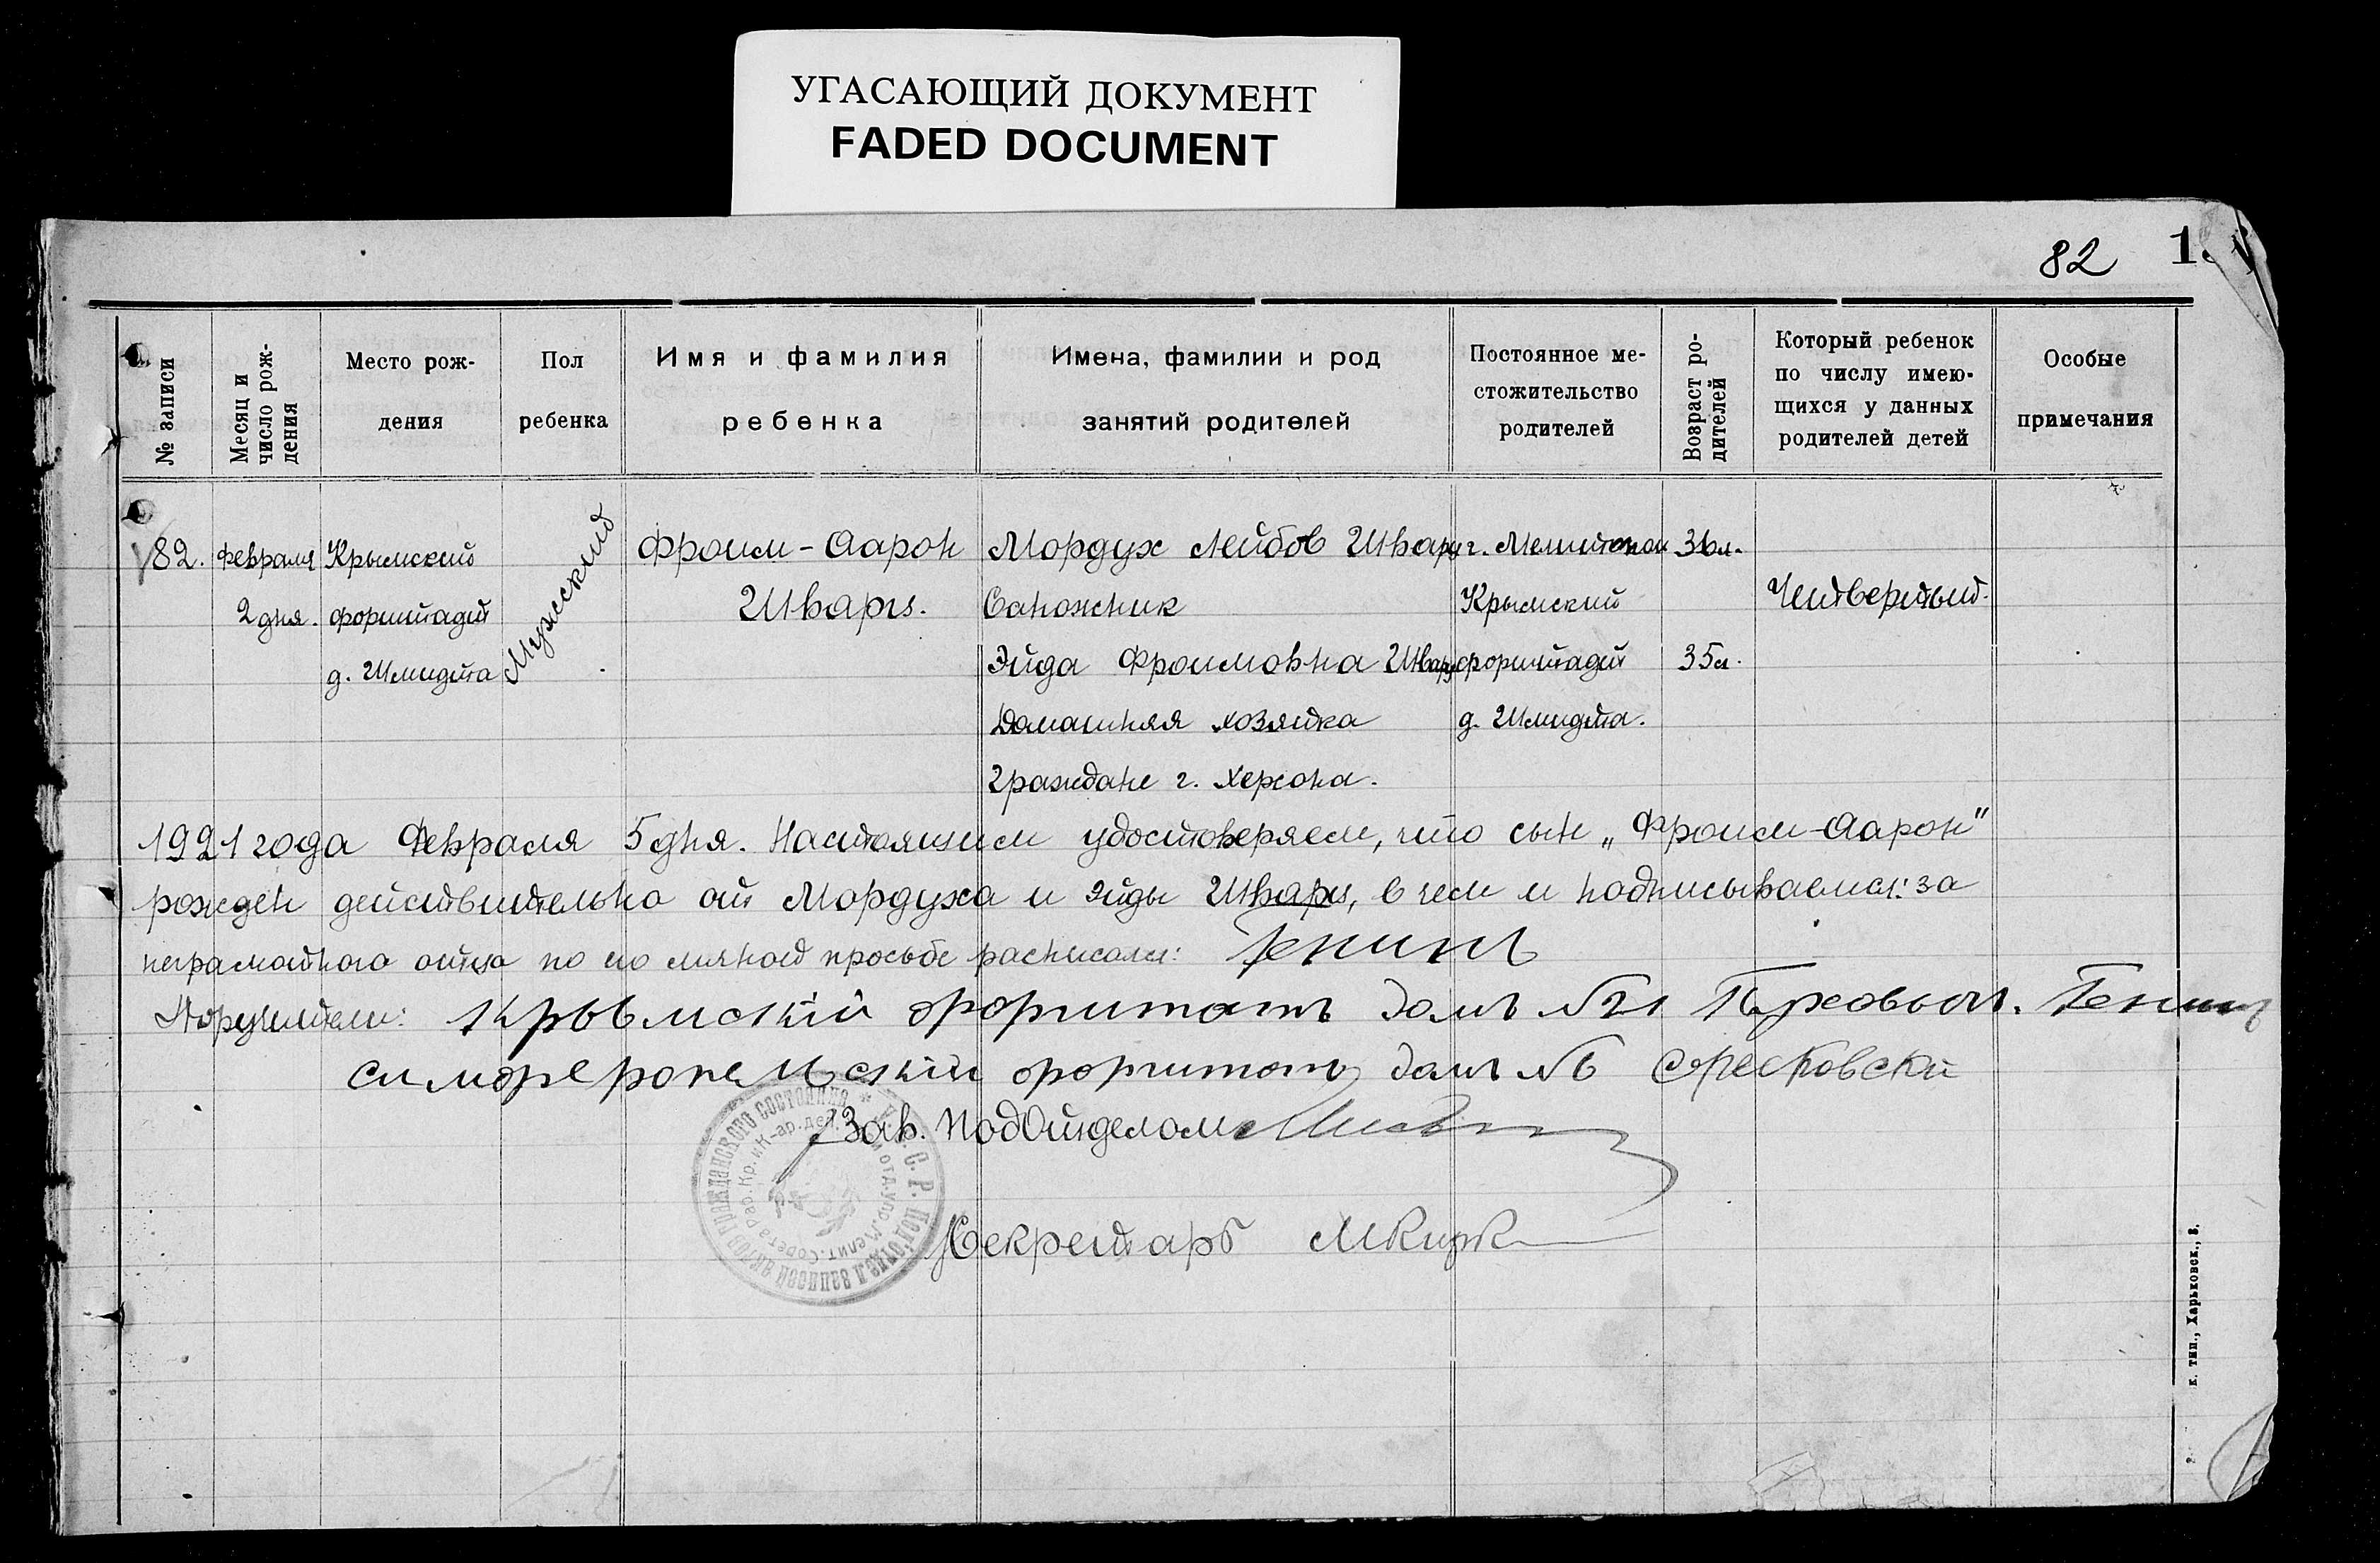 УГАСАЮЩИЙ ДОКУМЕНТ
FADED DOCUMENT
82
№ записи
Месяц и число рож-дения
Место рож-дения
Пол ребенка
Имя и фамилия ребенка
Имена, фамилии и род занятий родителей
Постоянное ме-стожительство родителей
Возраст ро-дителей
Который ребенок по числу имею-щихся у данных родителей детей
Особые примечания
82.
Февраля
2 дня.
Крымский
форштадт
д. Шмидта
Мужской
Фроим-Аарон
Шварц.
Мордух Лейбов Шварц
Сапожник
Эйда Фроимовна Шварц
Домашняя хозяйка
Граждане г. Херсона.
г. Мелитополь
Крымский
форштадт
д. Шмидта.
36 л.
35 л.
Четвертый.
1921 года Февраля 5 дня. Настоящим удостоверяем, что сын „Фроим-Аарон"
рожден действительно от Мордуха и Эйды Шварц, в чем и подписываемся: за
неграмотного отца по его личной просьбе расписался: Генинъ
Поручители: Крымский форштатъ домъ №21 Генинъ
симферопельский форштотъ домъ №6
Зав. ПодОтделом
Секретарь
Подотдел записей актов гражданского состояния
К. тип., Харьковск., 8.